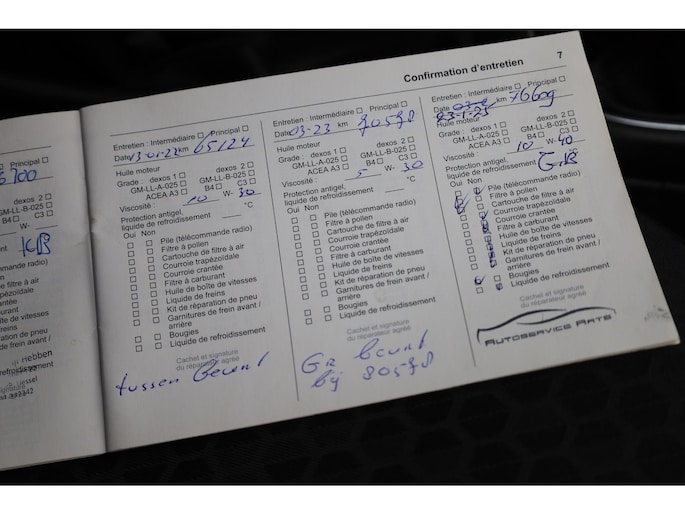 7
Confirmation d'entretien
Principal
5700
dexos 2
GM-LL-B-025
B4 C3
W-
°C
GB
(télécommande radio)
à air
trapézoïdale
rantée
rburant
oîte de vitesses
e freins
aration de pneu
s de frein avant /
Hebben
froidissement
essel
Entretien : Intermédiaire Principal
Date 13-01-22 km 65124
Huile moteur
Grade : dexos 1 dexos 2
GM-LL-A-025 GM-LL-B-025
ACEA A3 B4 C3
Viscosité : 10 W- 30
Protection antigel,
liquide de refroidissement °C
Oui Non
Pile (télécommande radio)
Filtre à pollen
Cartouche de filtre à air
Courroie trapézoïdale
Courroie crantée
Filtre à carburant
Huile de boîte de vitesses
Liquide de freins
Kit de réparation de pneu
Garnitures de frein avant /
arrière
Bougies
Liquide de refroidissement
Cachet et signature
du réparateur agréé
tussen beurt
Entretien : Intermédiaire Principal
Date 03-23 km 70578
Huile moteur
Grade : dexos 1 dexos 2
GM-LL-A-025 GM-LL-B-025
ACEA A3 B4 C3
Viscosité : 5 W- 30
Protection antigel,
liquide de refroidissement °C
Oui Non
Pile (télécommande radio)
Filtre à pollen
Cartouche de filtre à air
Courroie trapézoïdale
Courroie crantée
Filtre à carburant
Huile de boîte de vitesses
Liquide de freins
Kit de réparation de pneu
Garnitures de frein avant /
arrière
Bougies
Liquide de refroidissement
Cachet et signature
du réparateur agréé
Gr beurt
bij 70578
Entretien : Intermédiaire Principal
Date km 76609
Huile moteur
Grade : dexos 1 dexos 2
GM-LL-A-025 GM-LL-B-025
ACEA A3 B4 C3
Viscosité : 10 W- 40
Protection antigel,
liquide de refroidissement °C
GB
Oui Non
Pile (télécommande radio)
Filtre à pollen
Cartouche de filtre à air
Courroie trapézoïdale
Courroie crantée
Filtre à carburant
Huile de boîte de vitesses
Liquide de freins
Kit de réparation de pneu
Garnitures de frein avant /
arrière
Bougies
Liquide de refroidissement
Cachet et signature
du réparateur agréé
AUTOSERVICE ARTS